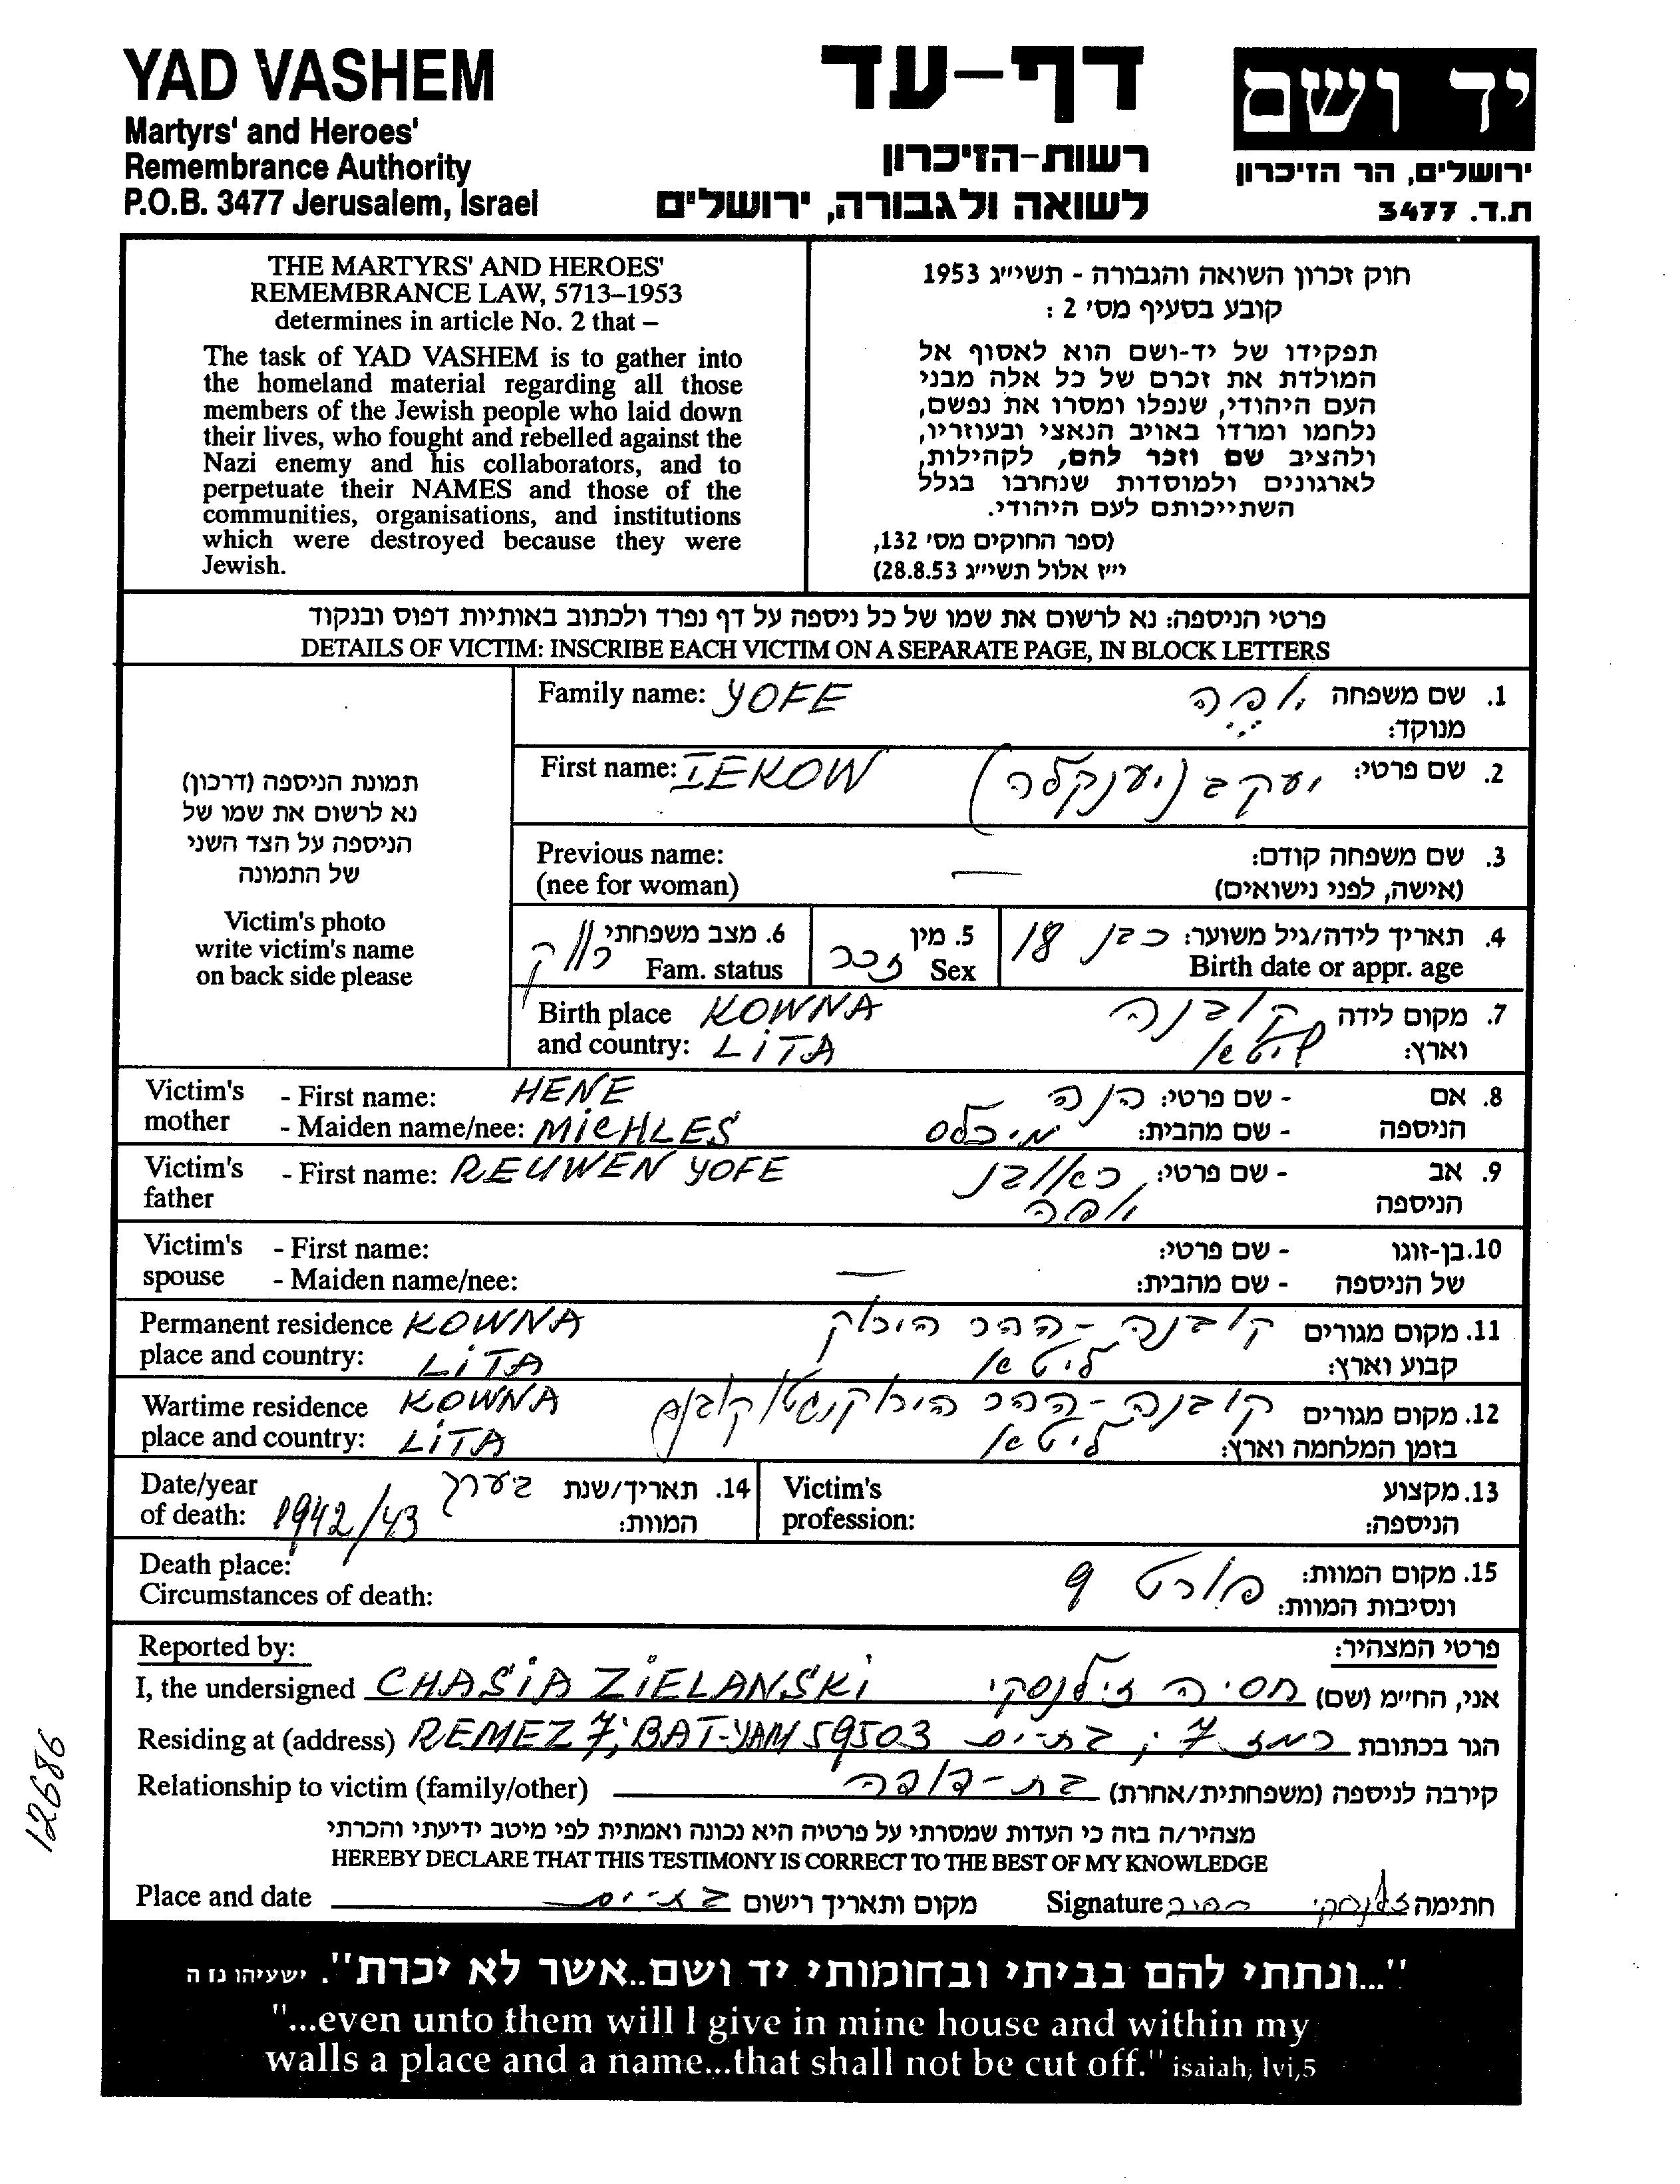 YAD VASHEM
Martyrs' and Heroes'
Remembrance Authority
P.O.B. 3477 Jerusalem, Israel
דף-עד
רשות-הזיכרון
לשואה ולגבורה, ירושלים
יד ושם
ירושלים, הר הזיכרון
ת.ד. 3477
THE MARTYRS' AND HEROES'
REMEMBRANCE LAW, 5713–1953
determines in article No. 2 that –
The task of YAD VASHEM is to gather into
the homeland material regarding all those
members of the Jewish people who laid down
their lives, who fought and rebelled against the
Nazi enemy and his collaborators, and to
perpetuate their NAMES and those of the
communities, organisations, and institutions
which were destroyed because they were
Jewish.
חוק זכרון השואה והגבורה - תשי״ג 1953
קובע בסעיף מס׳ 2 :
תפקידו של יד-ושם הוא לאסוף אל
המולדת את זכרם של כל אלה מבני
העם היהודי, שנפלו ומסרו את נפשם,
נלחמו ומרדו באויב הנאצי ובעוזריו,
ולהציב שם וזכר להם, לקהילות,
לארגונים ולמוסדות שנחרבו בגלל
השתייכותם לעם היהודי.
(ספר החוקים מס׳ 132,
י״ז אלול תשי״ג 28.8.53)
פרטי הניספה: נא לרשום את שמו של כל ניספה על דף נפרד ולכתוב באותיות דפוס ובנקוד
DETAILS OF VICTIM: INSCRIBE EACH VICTIM ON A SEPARATE PAGE, IN BLOCK LETTERS
תמונת הניספה (דרכון)
נא לרשום את שמו של
הניספה על הצד השני
של התמונה
Victim's photo
write victim's name
on back side please
Family name: YOFE יופה 1. שם משפחה
מנוקד:
First name: IEKOW יעקב (יענקלה) 2. שם פרטי:
Previous name: — 3. שם משפחה קודם:
(nee for woman) (אישה, לפני נישואים)
4. תאריך לידה/גיל משוער: כבן 18
Birth date or appr. age
5. מין זכר
Sex
6. מצב משפחתי רווק
Fam. status
Birth place KOWNA קובנה 7. מקום לידה
and country: LITA ליטא וארץ:
Victim's - First name: HENE הנה - שם פרטי: 8. אם
mother - Maiden name/nee: MICHLES מיכלס - שם מהבית: הניספה
Victim's - First name: REUWEN YOFE ראובן - שם פרטי: 9. אב
father יופה הניספה
Victim's - First name: - שם פרטי: 10. בן-זוגו
spouse - Maiden name/nee: — - שם מהבית: של הניספה
Permanent residence KOWNA קובנה - ההר הירוק 11. מקום מגורים
place and country: LITA ליטא קבוע וארץ:
Wartime residence KOWNA קובנה - ההר הירוק 12. מקום מגורים
place and country: LITA ליטא בזמן המלחמה וארץ:
Date/year בערך 14. תאריך/שנת
of death: 1942/43 המוות:
Victim's 13. מקצוע
profession: הניספה:
Death place: פורט 9 15. מקום המוות:
Circumstances of death: ונסיבות המוות:
Reported by: פרטי המצהיר:
I, the undersigned CHASIA ZIELANSKI חסיה זילנסקי אני, החי״מ (שם)
Residing at (address) REMEZ 7; BAT-YAM 59503 רמז 7; בת-ים הגר בכתובת
Relationship to victim (family/other) בת-דודה קירבה לניספה (משפחתית/אחרת)
מצהיר/ה בזה כי העדות שמסרתי על פרטיה היא נכונה ואמתית לפי מיטב ידיעתי והכרתי
HEREBY DECLARE THAT THIS TESTIMONY IS CORRECT TO THE BEST OF MY KNOWLEDGE
Place and date בת-ים מקום ותאריך רישום Signature חסיה זילנסקי חתימה
"...ונתתי להם בביתי ובחומותי יד ושם..אשר לא יכרת". ישעיהו נו ה
"...even unto them will I give in mine house and within my
walls a place and a name...that shall not be cut off." isaiah, lvi,5
12686